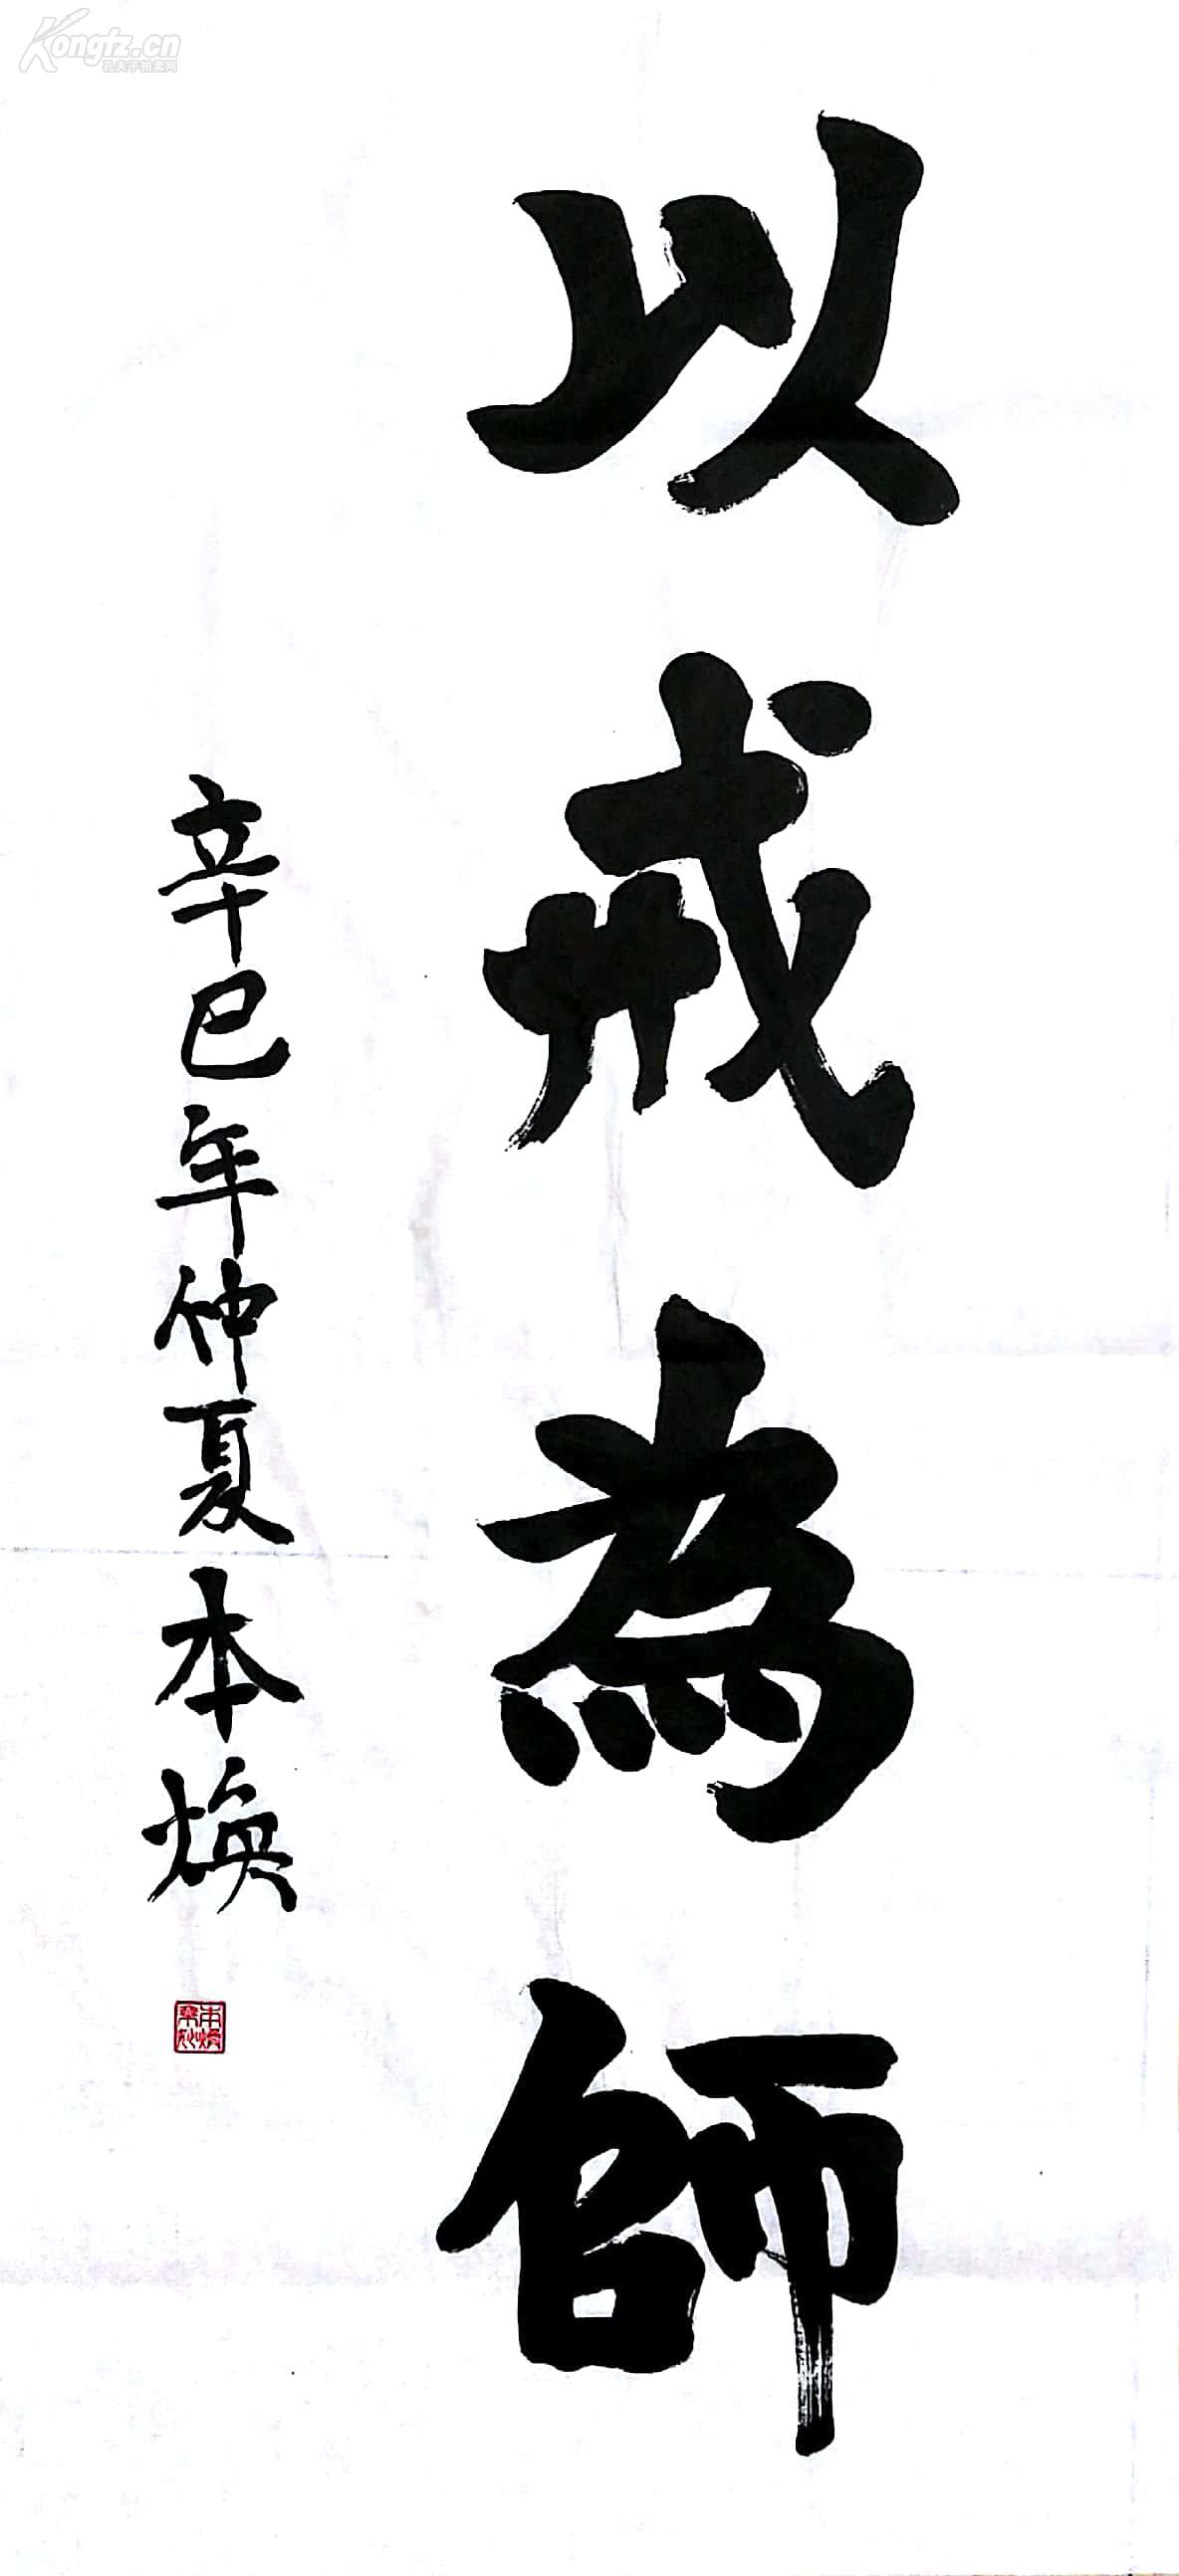 Kongfz.cn
孔夫子拍卖网
以戒為師
辛巳年仲夏本焕